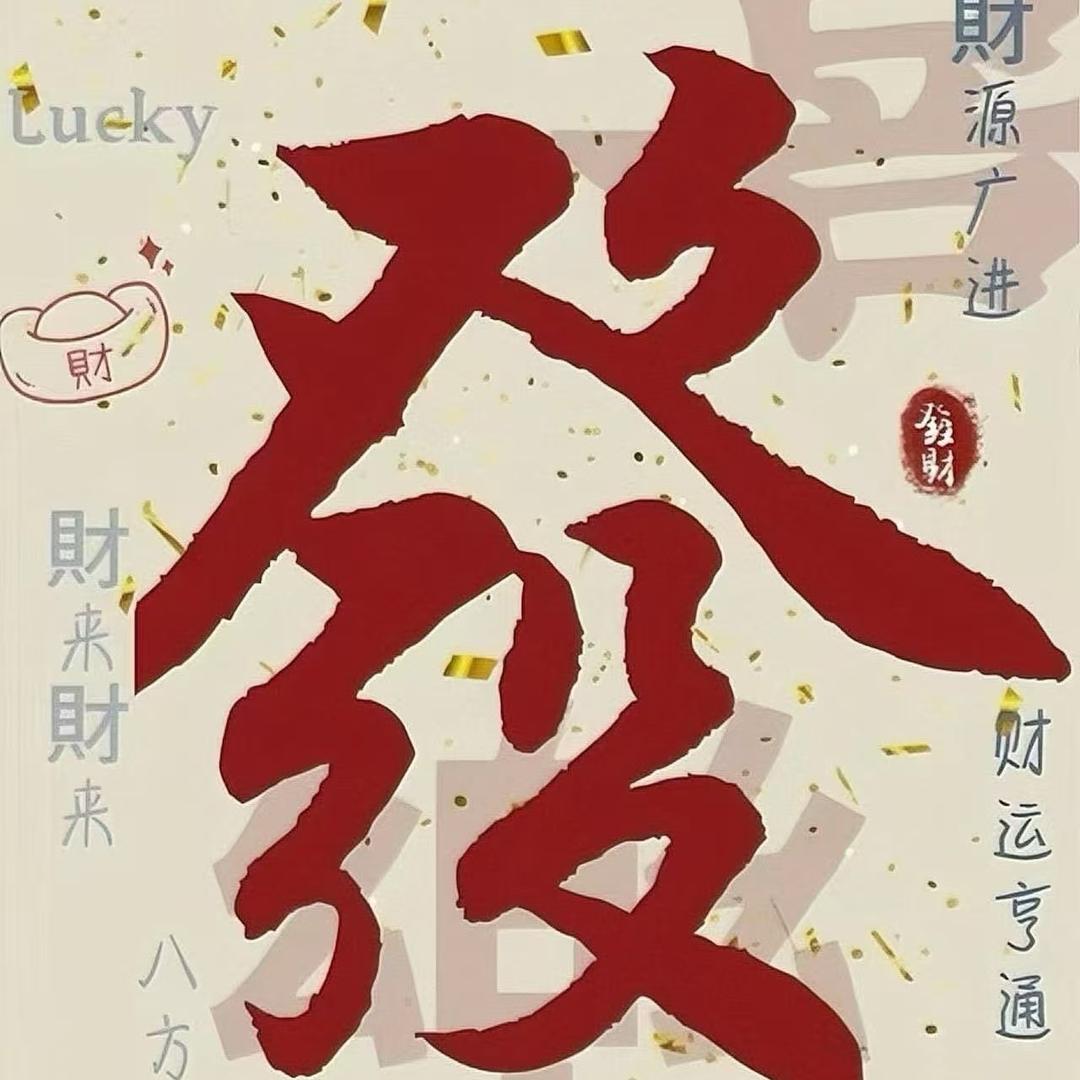 Lucky
財
財来財来
八方
發
財源广进
發財
财运亨通